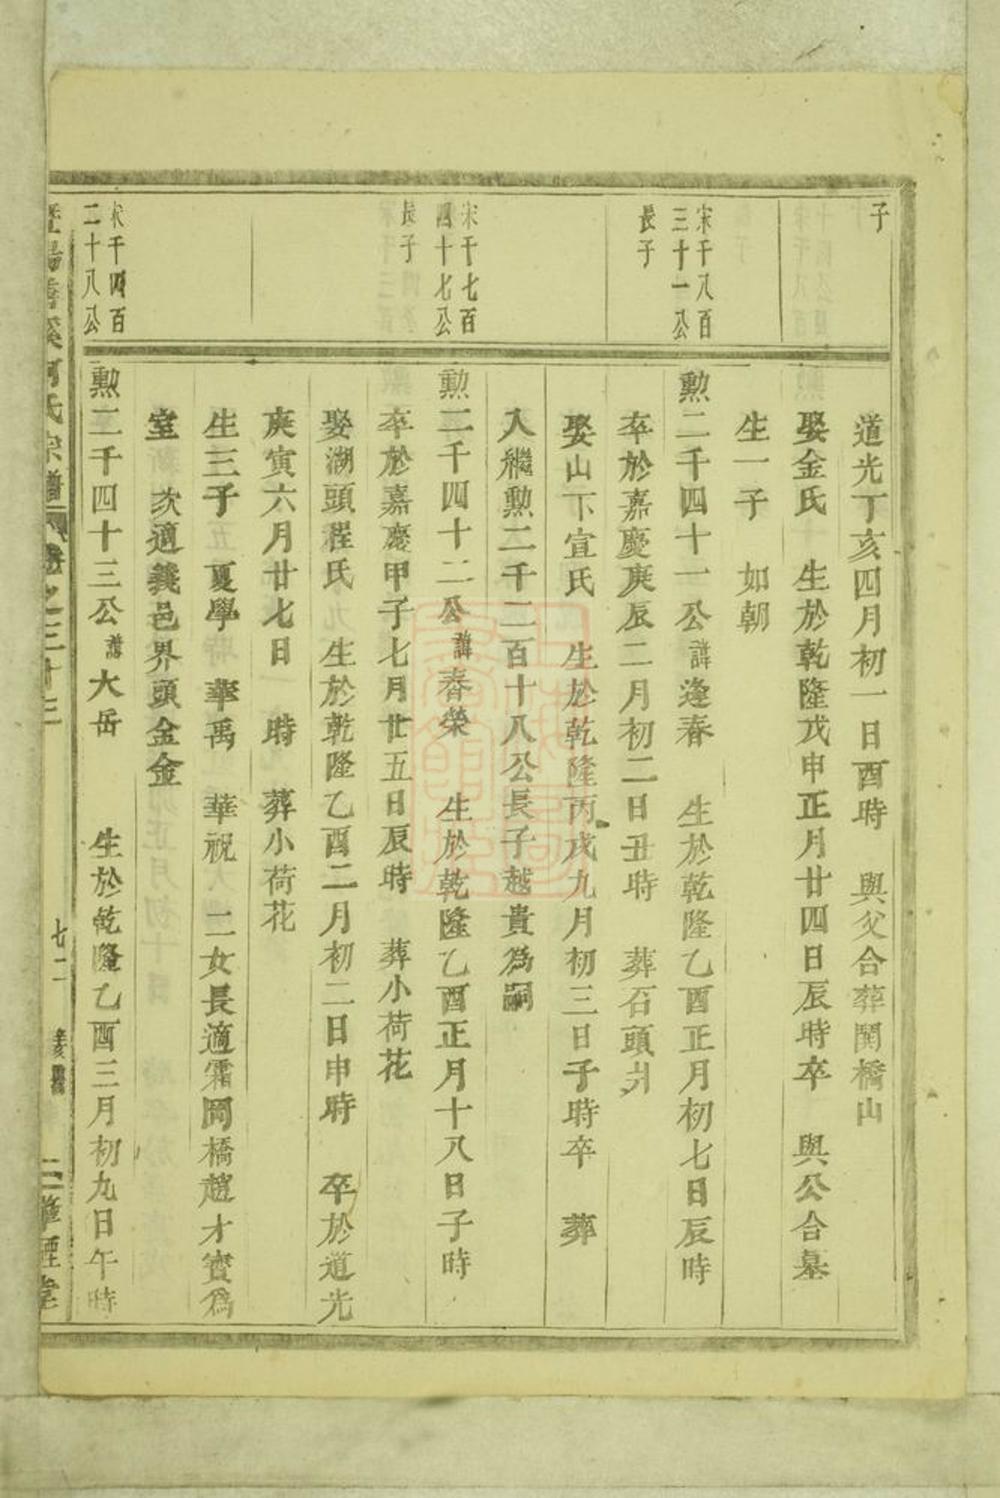 子
道光丁亥四月初一日酉時　與父合葬関橋山
娶金氏　生於乾隆戊申正月廿四日辰時卒　與公合墓
生一子　如朝
宋千八百
三十一公
長子
勲二千四十一公諱逢春　生於乾隆乙酉正月初七日辰時
卒於嘉慶庚辰二月初二日丑時　葬石頭爿
娶山下宣氏　生於乾隆丙戌九月初三日子時卒　葬
入繼勲二千二百十八公長子越貴為嗣
宋千七百
四十七公
長子
勲二千四十二公諱春榮　生於乾隆乙酉正月十八日子時
卒於嘉慶甲子七月廿五日辰時　葬小荷花
娶湖頭程氏　生於乾隆乙酉二月初二日申時　卒於道光
庚寅六月廿七日　時　葬小荷花
生三子　夏學　華禹　華祝　二女長適霜岡橋趙才寶為
室　次適義邑界頭金金
宋千四百
二十八公
勲二千四十三公諱大岳　生於乾隆乙酉三月初九日午時
何氏宗譜　卷之三十三　七二